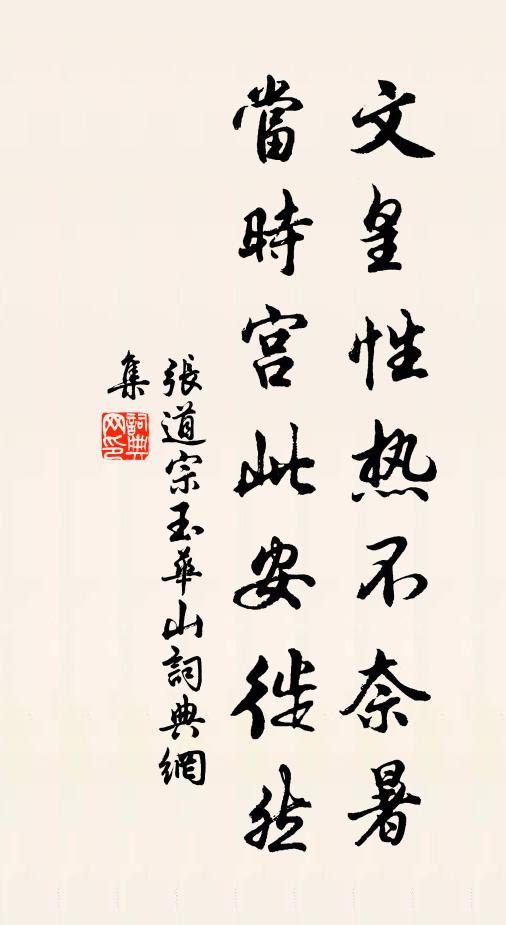 文皇性热不奈暑
當時宫此安徙然
張道宗玉華山詞典網
集
詞典
网印